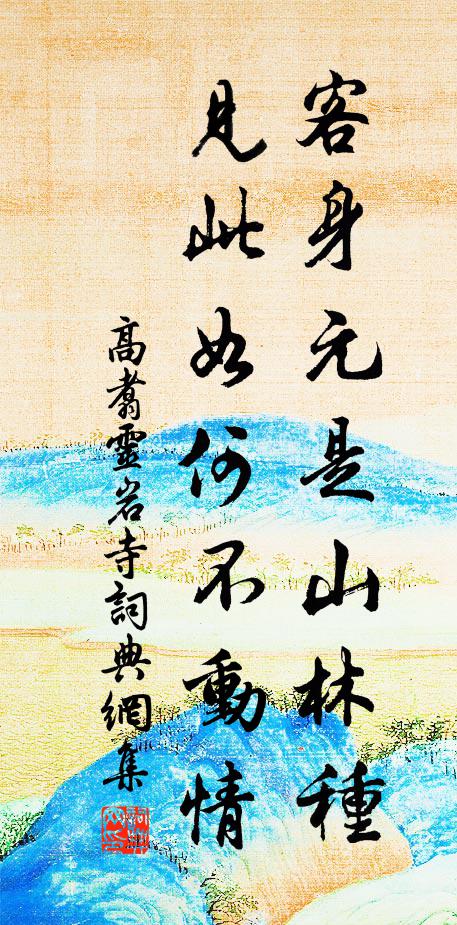 客身元是山林種
見此如何不動情
高翥靈岩寺詞典網集